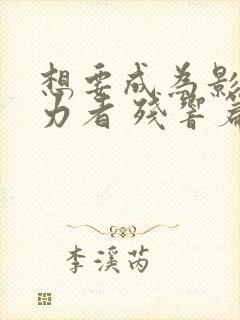 想要成为影
力者 残响篇
李溪芮